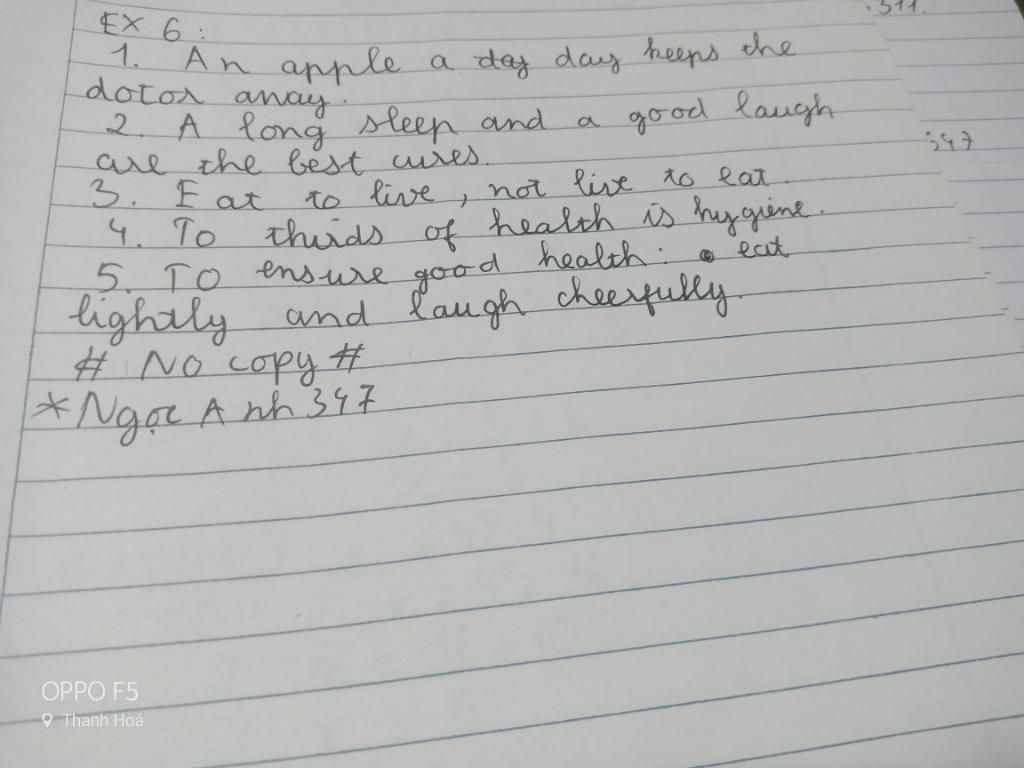 EX 6:
1. An apple a day day keeps the
dotor away.
2. A long sleep and a good laugh
are the best cures.
3. Eat to live, not live to eat
4. To thirds of health is hygiene.
5. TO ensure good health: eat
lightly and laugh cheerfully.
# No copy #
*Ngọc Anh 347
.311.
:347
OPPO F5
Thanh Hoá